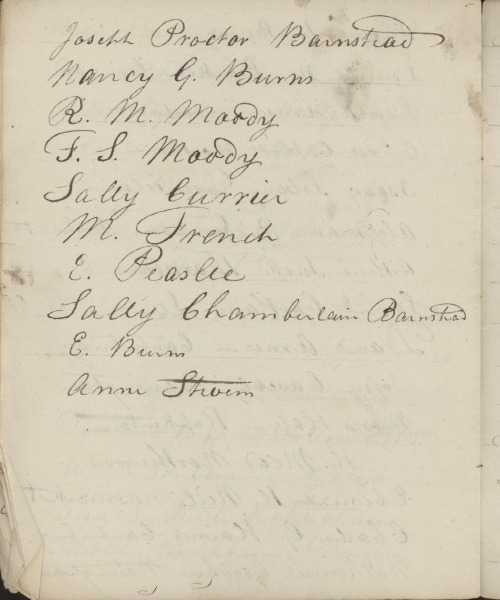 Joseph Proctor Barnstead
Nancy G. Burns
R. M. Moody
F. S. Moody
Sally Currier
M. French
E. Peaslee
Sally Chamberlain Barnstead
E. Burns
Anne Stevens